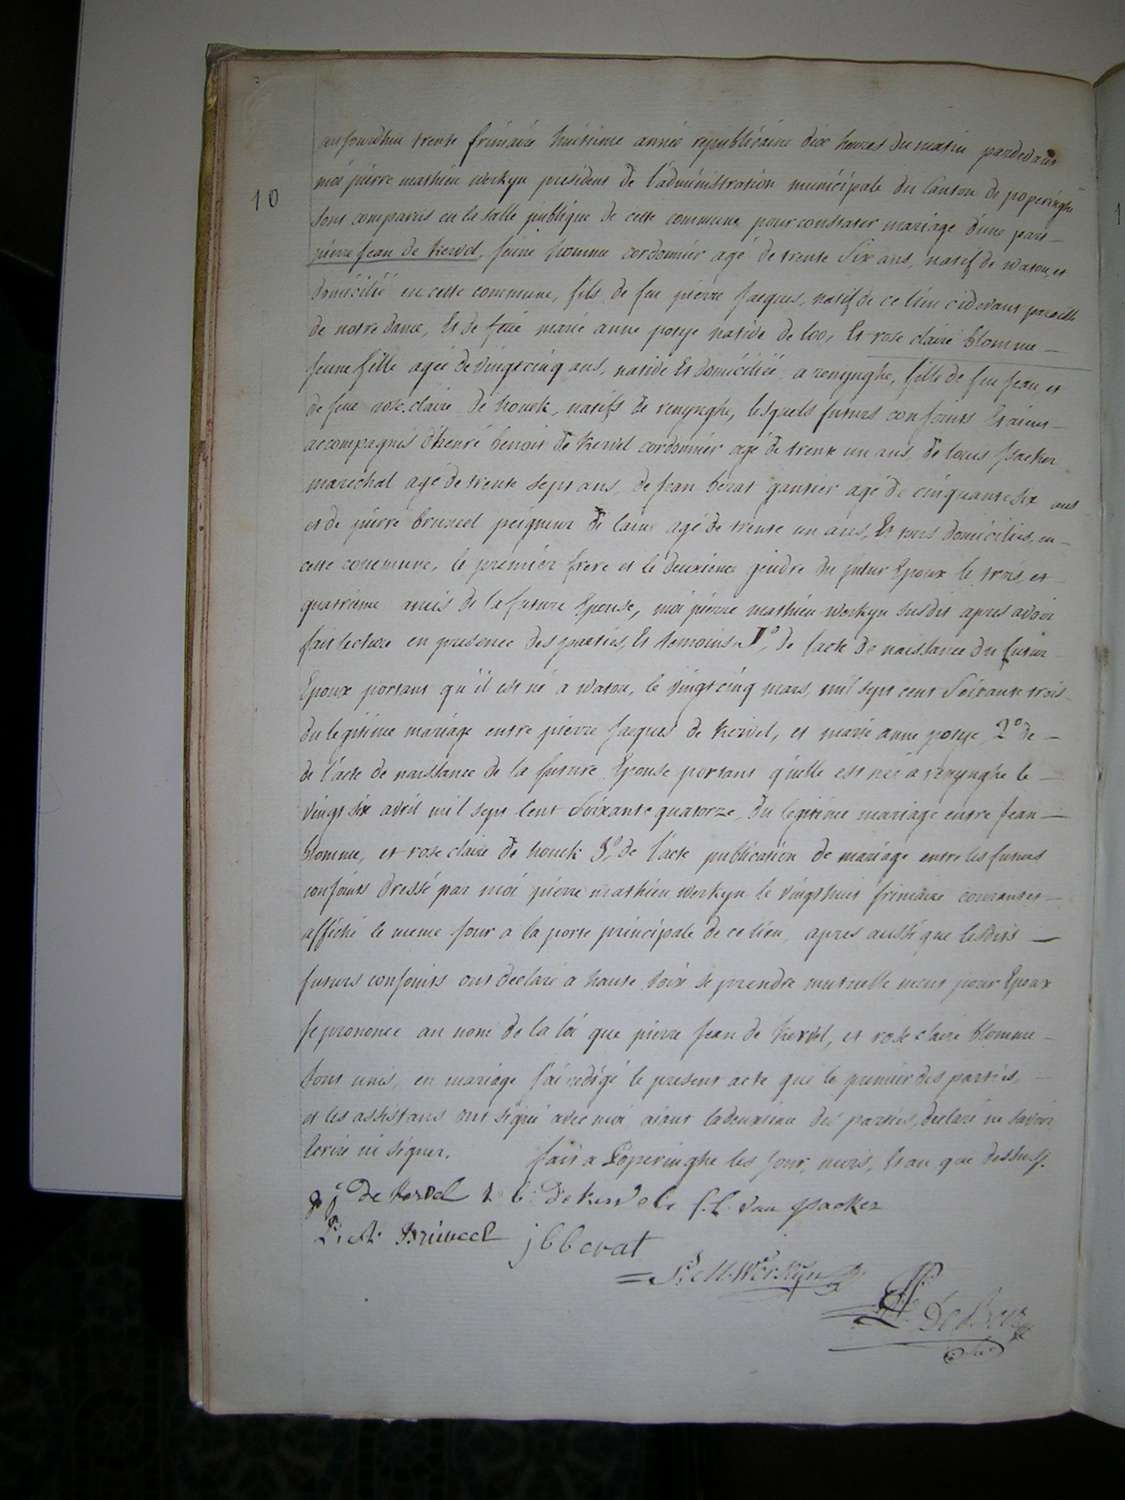 10
aujourdhui trente frimaire huitieme année republicaine dix heures du matin pardevant
moi pierre mathieu werkyn president de l'administration municipale du Canton de poperinghe
sont comparus en la salle publique de cette commune pour constater mariage d'une part
pierre jean de kervel, jeune homme cordonnier agé de trente Six ans, natif de watou, et
domicilié en cette commune, fils de feu pierre jacques, natif de ce lieu cidevant paroisse
de notre dame, Et de feue marie anne potye native de loo, Et rose claire blomme
jeune fille agée de vingt cinq ans, native Et domiciliée a renynghe, fille de feu jean, et
de feue rose claire de houck, natifs de renynghe, lesquels futurs conjoints Etaient
accompagnés d'henri benoit de kervel cordonnier agé de trente un ans de louis Isacker
marechal agé de trente sept ans, de jean berat gantier agé de cinquante six ans
et de pierre bruneel peigneur de laine agé de trente un ans, Et tous domiciliés, en
cette commune, le premier frere et le deuxieme gendre du futur Epoux le trois, et
quatrieme amis de la future Epouse, moi pierre mathieu werkyn susdit apres avoir
fait lecture en presence des parties, Et temoins. 1º, de l'acte de naissance du futur
Epoux portant qu'il est né a watou, le vingt cinq mars, mil sept cent Soixante trois
du legitime mariage entre pierre jacques de kervel, et marie anne potye 2º de
de l'acte de naissance de la future Epouse portant qu'elle est née a renynghe le
vingt six avril mil sept Cent Soixante quatorze du legitime mariage entre jean
blomme, et rose claire de houck 3º, de l'acte publication de mariage entre les futurs
conjoints dressé par moi pierre mathieu werkyn le vingt huit frimaire courant et
affiché le meme jour a la porte principale de ce lieu, apres aussi que lesdits
futurs conjoints ont declaré a haute voix se prendre mutuellement pour Epoux
je prononce au nom de la loi que pierre jean de kervel, et rose claire blomme
sont unis, en mariage j'ai redigé le present acte que le premier des parties,
et les assistans ont signé avec moi aiant la deuxieme des parties, declaré ne savoir
Ecrire ni signer. fait a Poperinghe les jour, mois, Et an que dessus.
p j de kervel h b: De kervele f. l. van Isacker
P: A: Bruneel j b berat
P: M: Werkyn